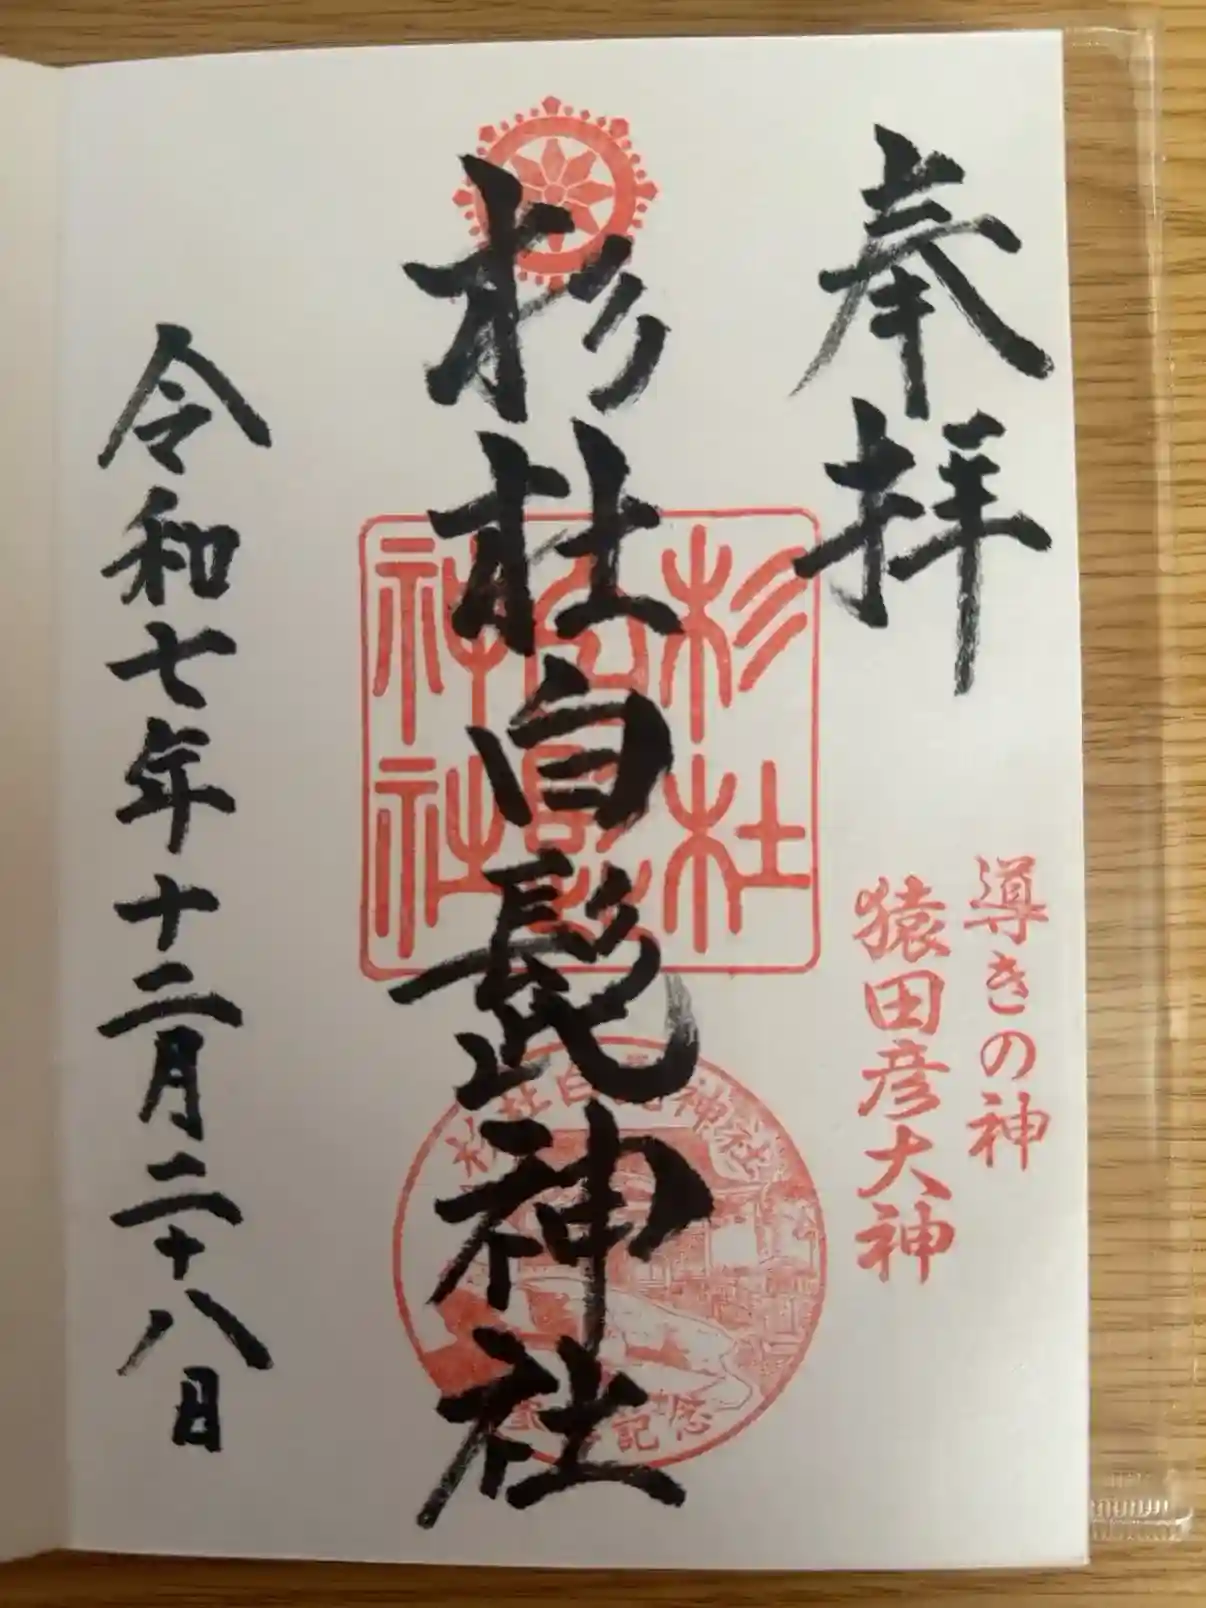 奉拝
導きの神
猿田彦大神
杉杜白髭神社
杉杜
白髭
神社
杜白
神社
記念
令和七年十二月二十八日